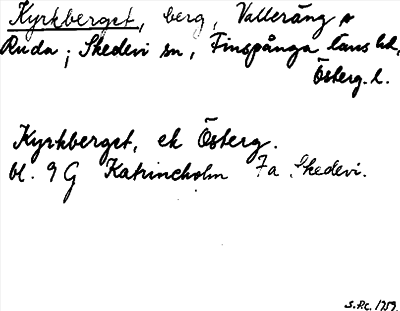 Kyrkberget, berg, Valleräng o
Ruda; Skedevi sn, Finspånga läns hd,
Österg. l.
Kyrkberget, ek Österg.
bl. 9 G Katrineholm 7a Skedevi.
1959.